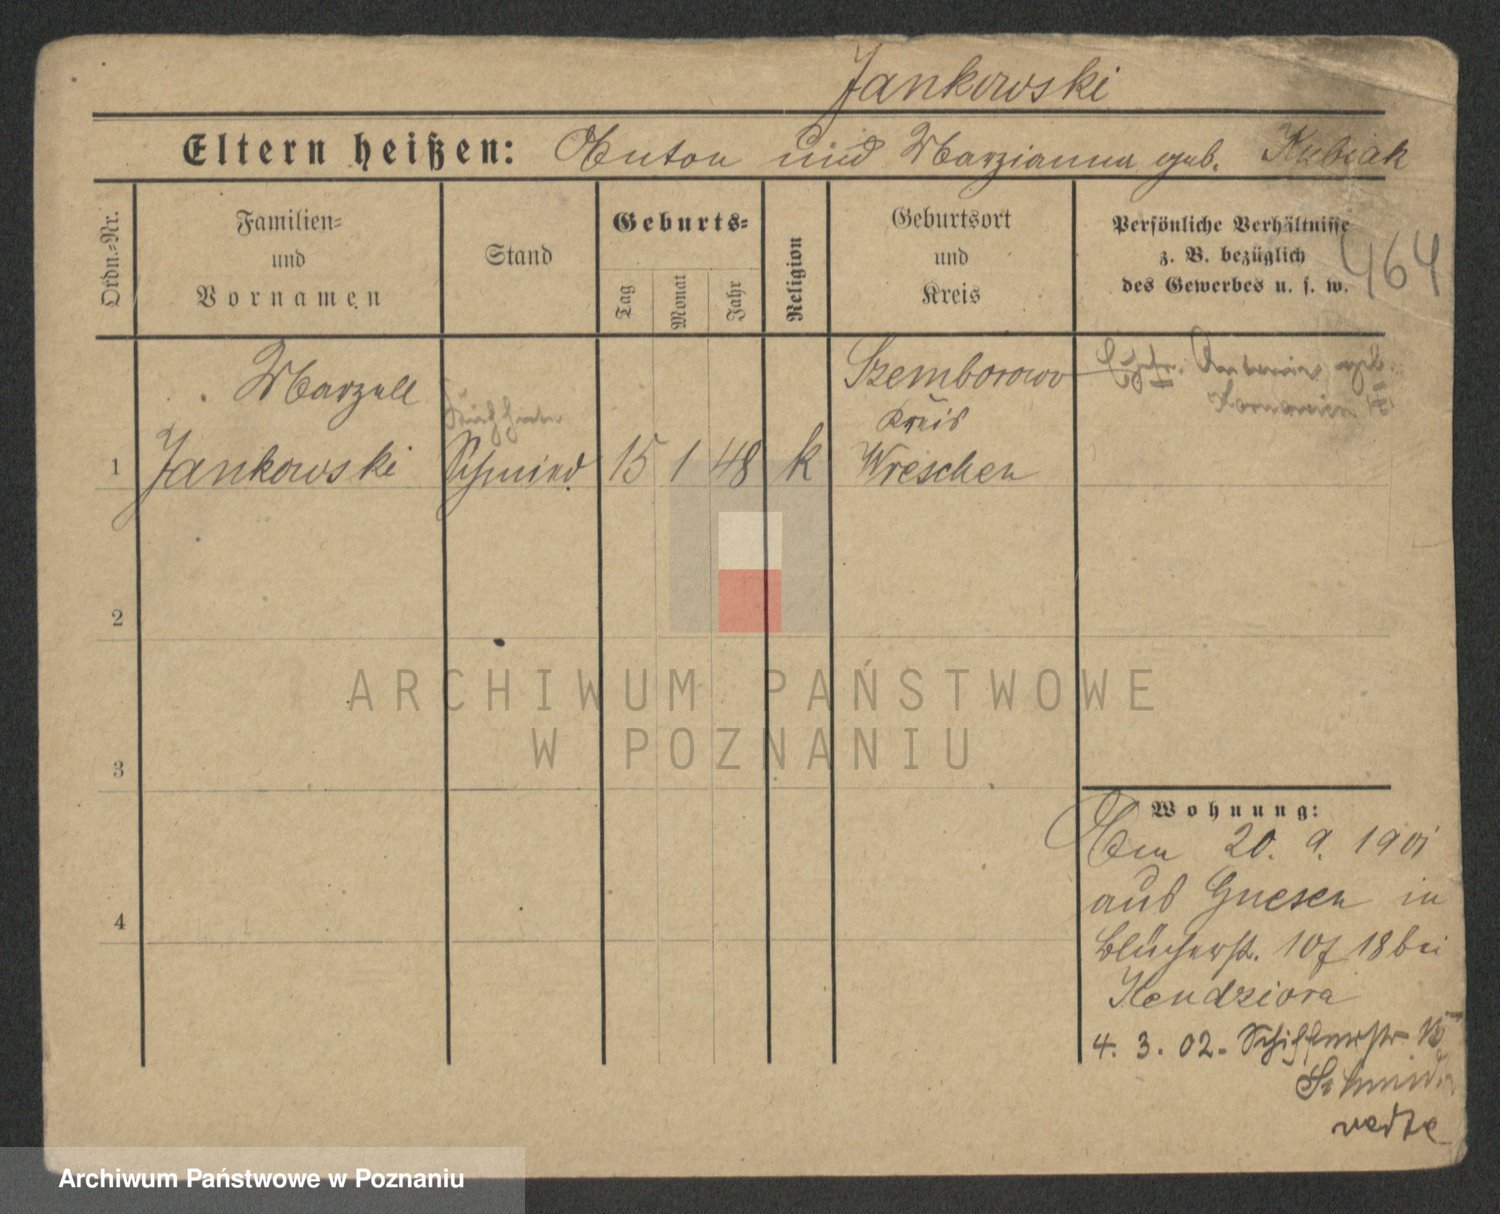 Jankowski
Eltern heißen: Anton und Marzianna geb. Kubiak
Ordn.-Nr.
Familien-
und
Vornamen
Stand
Geburts-
Tag
Monat
Jahr
Religion
Geburtsort
und
Kreis
Persönliche Verhältnisse
z. B. bezüglich
des Gewerbes u. s. w.
464
1
Marzell
Jankowski
Schmied
15 1 48
k
Szemborowo
Kreis
Wreschen
Ehefr. Antonie, geb.
2
3
4
ARCHIWUM PAŃSTWOWE
W POZNANIU
Wohnung:
Am 20. 9. 1901
aus Gnesen in
Blücherst. 10 18 bei
Kendziora
4. 3. 02. Schifferstr
Archiwum Państwowe w Poznaniu